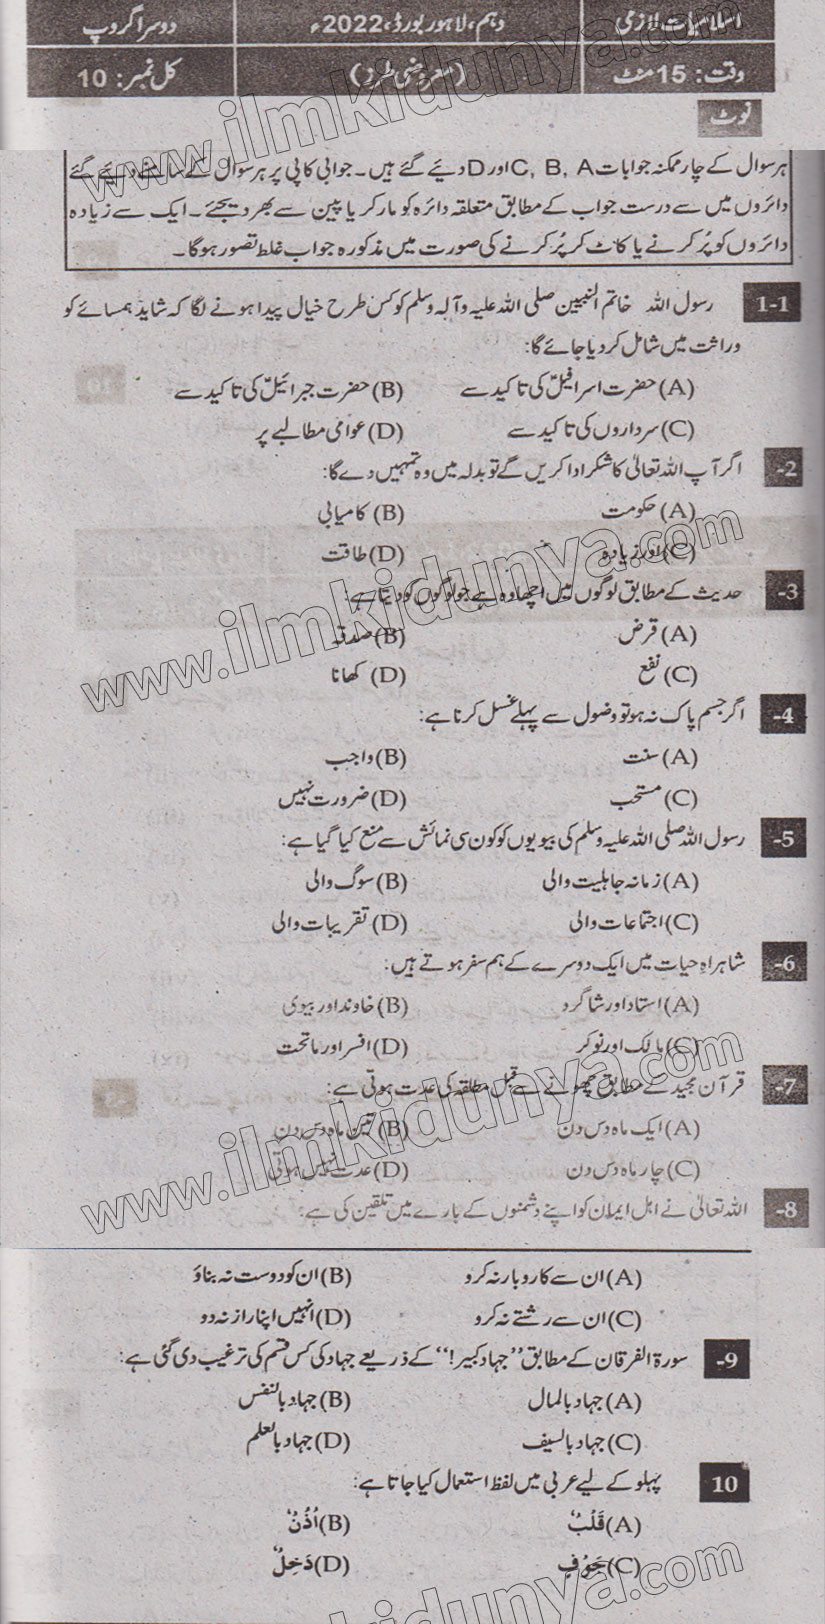 اسلامیات لازمی
دہم، لاہور بورڈ، 2022ء
دوسرا گروپ
وقت: 15 منٹ
(معروضی طرز)
کل نمبر: 10
نوٹ
ہر سوال کے چار ممکنہ جوابات C, B, A اور D دیئے گئے ہیں۔ جوابی کاپی پر ہر سوال کے سامنے دیئے گئے
دائروں میں سے درست جواب کے مطابق متعلقہ دائرہ کو مارکر یا پین سے بھر دیجئے۔ ایک سے زیادہ
دائروں کو پُر کرنے یا کاٹ کر پُر کرنے کی صورت میں مذکورہ جواب غلط تصور ہوگا۔
1-1 رسول اللہ خاتم النبیین صلی اللہ علیہ وآلہ وسلم کو کس طرح خیال پیدا ہونے لگا کہ شاید ہمسائے کو
وراثت میں شامل کر دیا جائے گا:
(A) حضرت اسرافیلؑ کی تاکید سے (B) حضرت جبرائیلؑ کی تاکید سے
(C) سرداروں کی تاکید سے (D) عوامی مطالبے پر
2- اگر آپ اللہ تعالیٰ کا شکر ادا کریں گے تو بدلہ میں وہ تمہیں دے گا:
(A) حکومت (B) کامیابی
(C) اور زیادہ (D) طاقت
3- حدیث کے مطابق لوگوں میں اچھا وہ ہے جو لوگوں کو دیتا ہے:
(A) قرض (B) صدقہ
(C) نفع (D) کھانا
4- اگر جسم پاک نہ ہو تو وضول سے پہلے غسل کرنا ہے:
(A) سنت (B) واجب
(C) مستحب (D) ضرورت نہیں
5- رسول اللہ صلی اللہ علیہ وسلم کی بیویوں کو کون سی نمائش سے منع کیا گیا ہے:
(A) زمانہ جاہلیت والی (B) سوگ والی
(C) اجتماعات والی (D) تقریبات والی
6- شاہراہِ حیات میں ایک دوسرے کے ہم سفر ہوتے ہیں:
(A) استاد اور شاگرد (B) خاوند اور بیوی
(C) مالک اور نوکر (D) افسر اور ماتحت
7- قرآن مجید کے مطابق چھونے سے قبل مطلقہ کی عدت ہوتی ہے:
(A) ایک ماہ دس دن (B) تین ماہ دس دن
(C) چار ماہ دس دن (D) عدت نہیں ہوتی
8- اللہ تعالیٰ نے اہل ایمان کو اپنے دشمنوں کے بارے میں تلقین کی ہے:
(A) ان سے کاروبار نہ کرو (B) ان کو دوست نہ بناؤ
(C) ان سے رشتے نہ کرو (D) انہیں اپنا راز نہ دو
9- سورۃ الفرقان کے مطابق "جہاد کبیر!" کے ذریعے جہاد کی کس قسم کی ترغیب دی گئی ہے:
(A) جہاد بالمال (B) جہاد بالنفس
(C) جہاد بالسیف (D) جہاد بالعلم
10 پہلو کے لیے عربی میں لفظ استعمال کیا جاتا ہے:
(A) قَلْبٌ (B) اُذُنٌ
(C) جَوْفٍ (D) دَخِلٌ
www.ilmkidunya.com
www.ilmkidunya.com
www.ilmkidunya.com
www.ilmkidunya.com